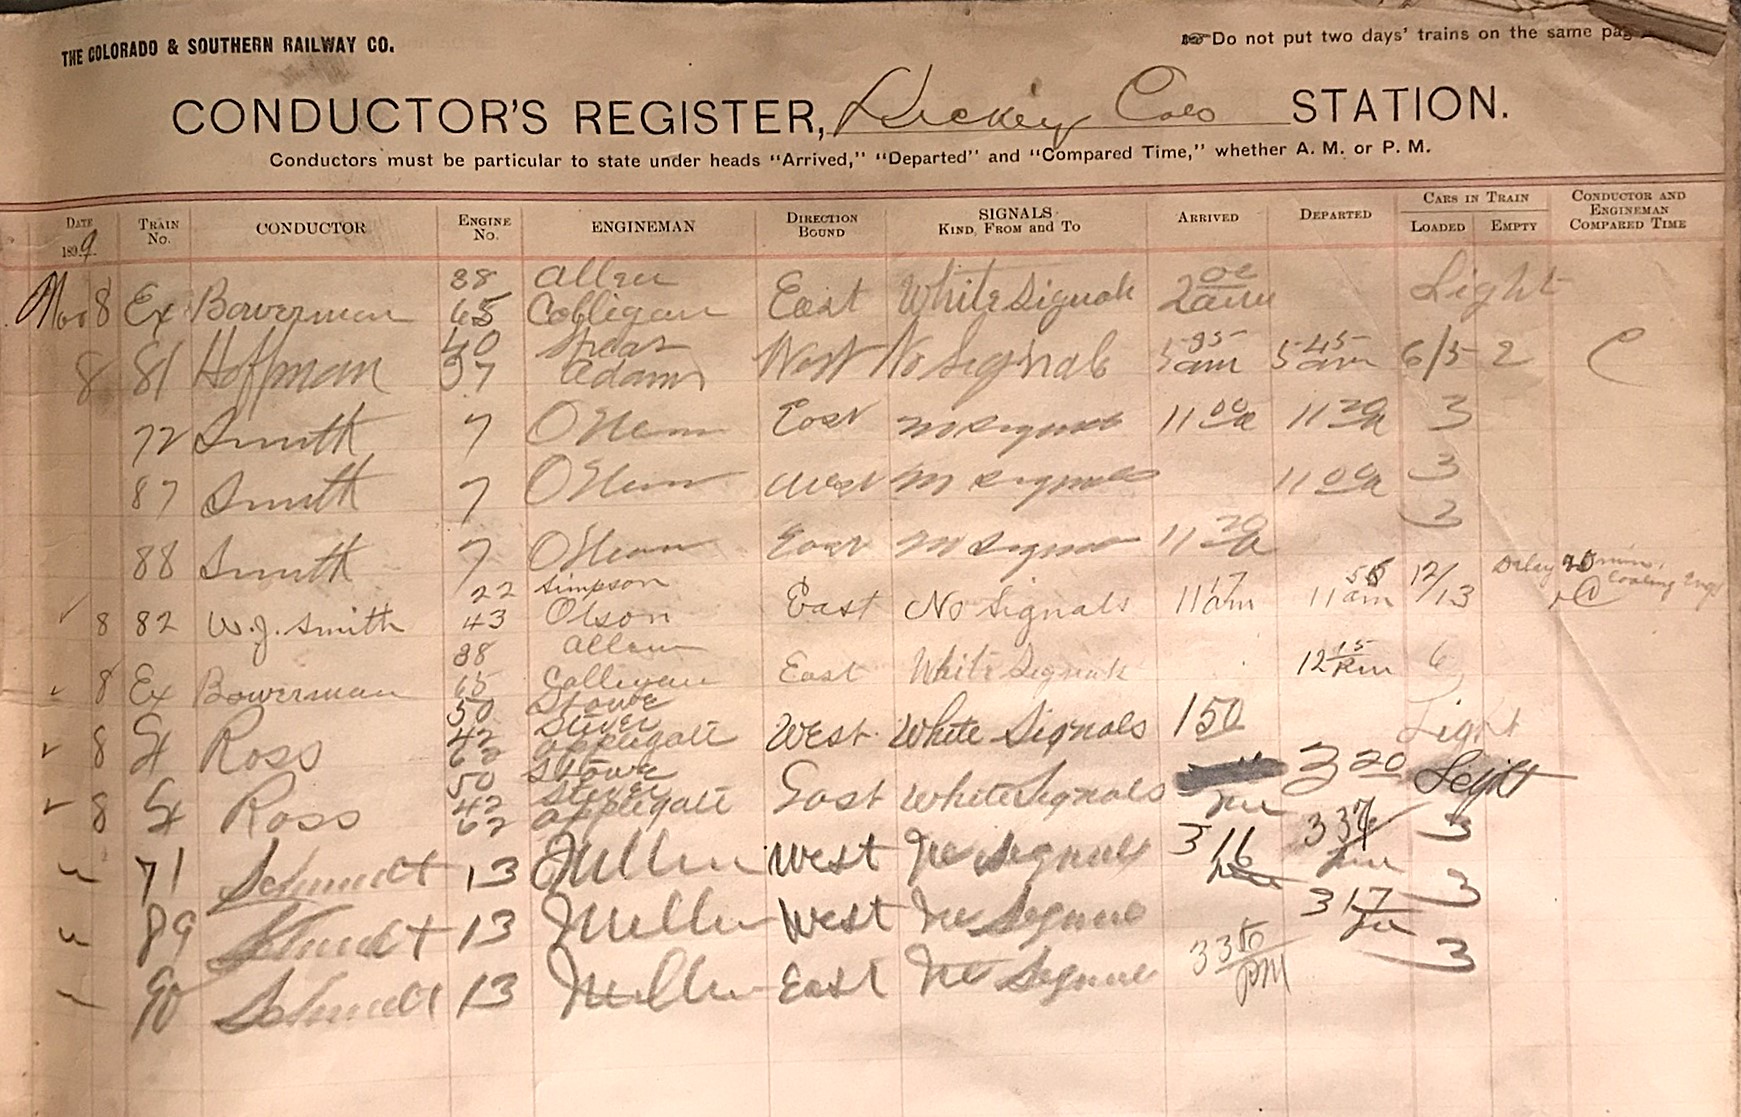 THE COLORADO & SOUTHERN RAILWAY CO.
Do not put two days' trains on the same pag
CONDUCTOR'S REGISTER, Dickey Colo STATION.
Conductors must be particular to state under heads "Arrived," "Departed" and "Compared Time," whether A. M. or P. M.
DATE 1899 TRAIN No. CONDUCTOR ENGINE No. ENGINEMAN DIRECTION BOUND SIGNALS KIND, FROM and TO ARRIVED DEPARTED CARS IN TRAIN LOADED EMPTY CONDUCTOR AND ENGINEMAN COMPARED TIME
38 Allen
Nov 8 Ex Bowerman 65 Colligan East White Signals 2 00 am Light
40
8 81 Hoffman 37 Adams West No Signals 5 35 am 5 45 am 6/5 2 C
72 Smith 7 East 11 00 a 11 20 a 3
87 Smith 7 West 11 00 a 3
3
88 Smith 7 East 11 20 a
22 Simpson Delay mins. Coaling Engs
8 82 W. J. Smith 43 Olson East No Signals 11 17 am 11 am 12/13
38 Allen
8 Ex Bowerman 65 Colligan East White Signals 12 15 Pm 6
50 Stowe
42 Stever
8 Ex Ross 62 Applegate West White Signals 150 Light
50 Stowe
42 Stever
8 Ex Ross 62 Applegate East White Signals 3 20 Light
71 Schmidt 13 Miller West No Signals 3 16 3
89 Schmidt 13 Miller West No Signals 3 17 3
90 Schmidt 13 Miller East No Signals PM 3